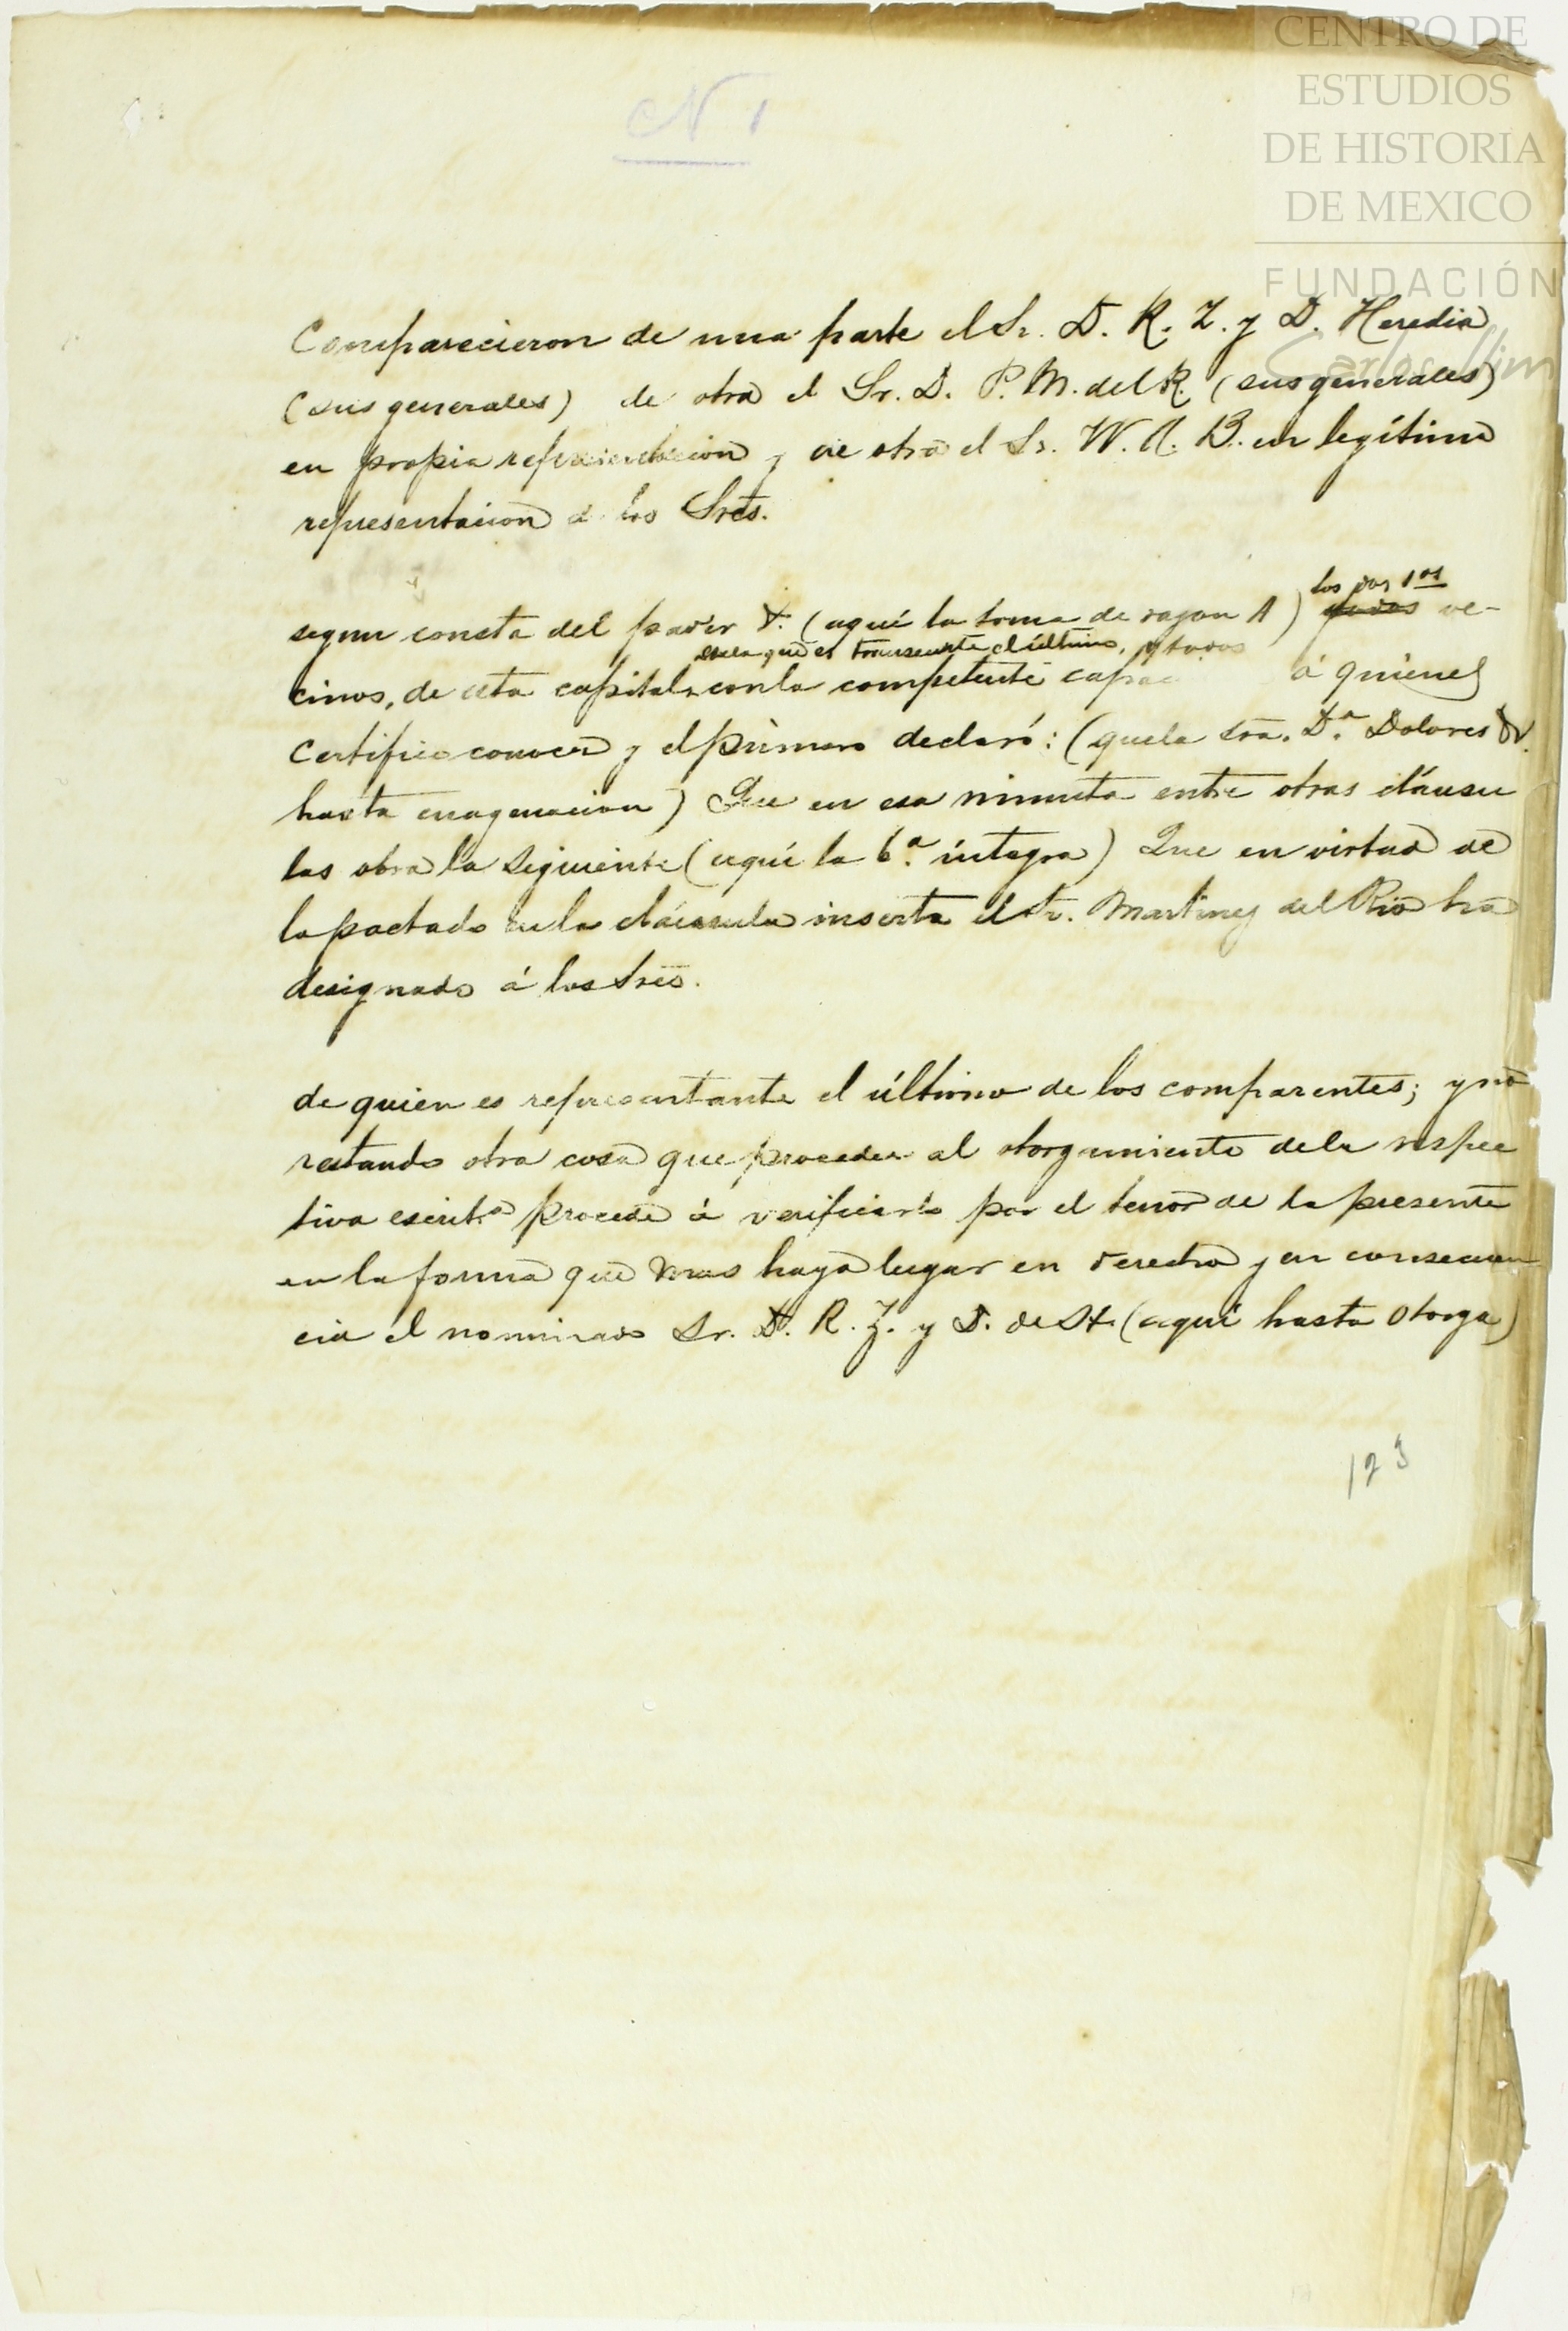 CENTRO DE
ESTUDIOS
DE HISTORIA
DE MEXICO
FUNDACIÓN
Carlos Slim
N 1
Comparecieron de una parte el Sr. D. R. Z. y D. Heredia
(sus generales) de otra el Sr. D. P. M. del R. (sus generales)
en propia representacion y de otra el Sr. W. A. B. en legítima
representacion d los Sres.
los dos 1os
segun consta del poder &. (aquí la toma de razon A) todos ve-
de la que es transeunte el último, y todos
cinos, de esta capital con la competente capac á quienes
certifico conocer y el primero declaró: (que la Sra. Da. Dolores &.
hasta enagenacion) Que en esa minuta entre otras cláusu
las obra la siguiente (aquí la 6.a íntegra) Que en virtud de
lo pactado en la cláusula inserta el Sr. Martinez del Rio ha
designado á los Sres.
de quien es representante el último de los comparentes; y no
restando otra cosa que proceder al otorgamiento de la respec
tiva escrita. procede á verificarlo por el tenor de la presente
en la forma que mas haya lugar en derecho y en consecuen
cia el nominado Sr. D. R. Z. y D. de H. (aquí hasta otorga)
123